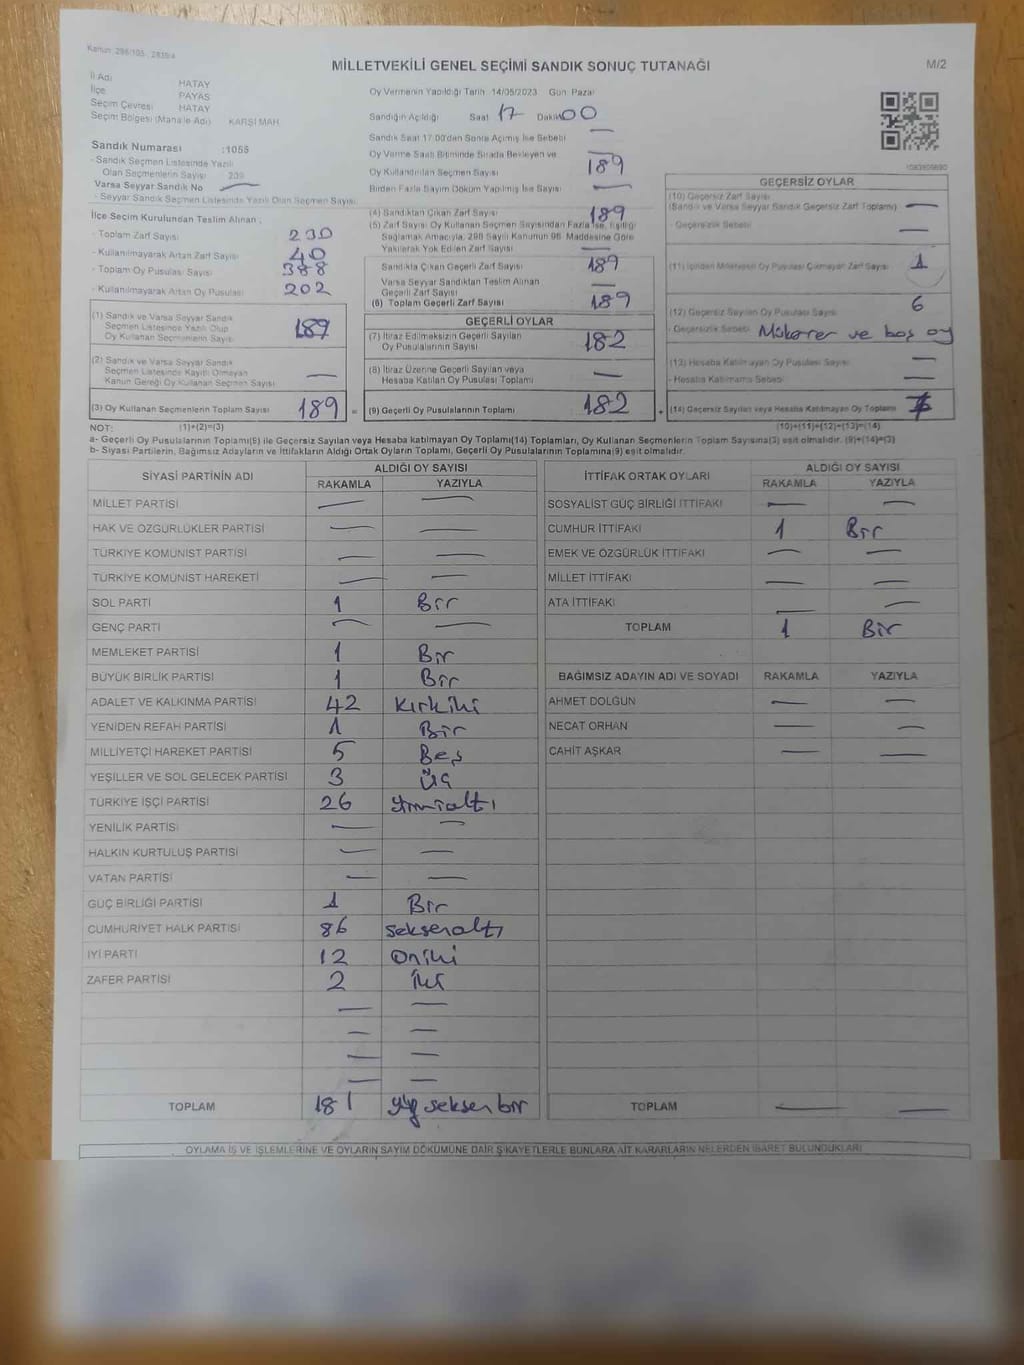 Kanun: 298/105, 2839/4
MİLLETVEKİLİ GENEL SEÇİMİ SANDIK SONUÇ TUTANAĞI
M/2
İl Adı HATAY
İlçe PAYAS
Seçim Çevresi HATAY
Seçim Bölgesi (Mahalle Adı) KARŞI MAH
Sandık Numarası :1055
- Sandık Seçmen Listesinde Yazılı
Olan Seçmenlerin Sayısı 209
Varsa Seyyar Sandık No —
- Seyyar Sandık Seçmen Listesinde Yazılı Olan Seçmen Sayısı
İlçe Seçim Kurulundan Teslim Alınan ;
- Toplam Zarf Sayısı 230
- Kullanılmayarak Artan Zarf Sayısı 40
- Toplam Oy Pusulası Sayısı 388
- Kullanılmayarak Artan Oy Pusulası 202
(1) Sandık ve Varsa Seyyar Sandık
Seçmen Listesinde Yazılı Olup
Oy Kullanan Seçmenlerin Sayısı 189
(2) Sandık ve Varsa Seyyar Sandık
Seçmen Listesinde Kayıtlı Olmayan
Kanun Gereği Oy Kullanan Seçmen Sayısı —
(3) Oy Kullanan Seçmenlerin Toplam Sayısı 189
Oy Vermenin Yapıldığı Tarih 14/05/2023 Gün Pazar
Sandığın Açıldığı Saat 17 Dakika 00
Sandık Saat 17.00'den Sonra Açılmış İse Sebebi —
Oy Verme Saati Bitiminde Sırada Bekleyen ve —
Oy Kullandırılan Seçmen Sayısı 189
Birden Fazla Sayım Döküm Yapılmış İse Sayısı —
(4) Sandıktan Çıkan Zarf Sayısı 189
(5) Zarf Sayısı Oy Kullanan Seçmen Sayısından Fazla İse, Eşitliği
Sağlamak Amacıyla, 298 Sayılı Kanunun 98. Maddesine Göre
Yakılarak Yok Edilen Zarf Sayısı —
Sandıkta Çıkan Geçerli Zarf Sayısı 189
Varsa Seyyar Sandıktan Teslim Alınan
Geçerli Zarf Sayısı —
(6) Toplam Geçerli Zarf Sayısı 189
GEÇERLİ OYLAR
(7) İtiraz Edilmeksizin Geçerli Sayılan
Oy Pusulalarının Sayısı 182
(8) İtiraz Üzerine Geçerli Sayılan veya
Hesaba Katılan Oy Pusulası Toplamı —
= (9) Geçerli Oy Pusulalarının Toplamı 182
GEÇERSİZ OYLAR
(10) Geçersiz Zarf Sayısı
(Sandık ve Varsa Seyyar Sandık Geçersiz Zarf Toplamı) —
- Geçersizlik Sebebi —
(11) İçinden Milletvekili Oy Pusulası Çıkmayan Zarf Sayısı 1
(12) Geçersiz Sayılan Oy Pusulası Sayısı 6
- Geçersizlik Sebebi Mükerer ve boş oy
(13) Hesaba Katılmayan Oy Pusulası Sayısı —
- Hesaba Katılmama Sebebi —
+ (14) Geçersiz Sayılan veya Hesaba Katılmayan Oy Toplamı
NOT: (1)+(2)=(3) (10)+(11)+(12)+(13)=(14)
a- Geçerli Oy Pusulalarının Toplamı(9) ile Geçersiz Sayılan veya Hesaba katılmayan Oy Toplamı(14) Toplamları, Oy Kullanan Seçmenlerin Toplam Sayısına(3) eşit olmalıdır. (9)+(14)=(3)
b- Siyasi Partilerin, Bağımsız Adayların ve İttifakların Aldığı Ortak Oyların Toplamı, Geçerli Oy Pusulalarının Toplamına(9) eşit olmalıdır.
SİYASİ PARTİNİN ADI ALDIĞI OY SAYISI
RAKAMLA YAZIYLA
MİLLET PARTİSİ — —
HAK VE ÖZGÜRLÜKLER PARTİSİ — —
TÜRKİYE KOMÜNİST PARTİSİ — —
TÜRKİYE KOMÜNİST HAREKETİ — —
SOL PARTİ 1 Bir
GENÇ PARTİ — —
MEMLEKET PARTİSİ 1 Bir
BÜYÜK BİRLİK PARTİSİ 1 Bir
ADALET VE KALKINMA PARTİSİ 42 Kırkiki
YENİDEN REFAH PARTİSİ 1 Bir
MİLLİYETÇİ HAREKET PARTİSİ 5 Beş
YEŞİLLER VE SOL GELECEK PARTİSİ 3 Üç
TÜRKİYE İŞÇİ PARTİSİ 26 yirmialtı
YENİLİK PARTİSİ — —
HALKIN KURTULUŞ PARTİSİ — —
VATAN PARTİSİ — —
GÜÇ BİRLİĞİ PARTİSİ 1 Bir
CUMHURİYET HALK PARTİSİ 86 seksenaltı
İYİ PARTİ 12 Oniki
ZAFER PARTİSİ 2 iki
— —
— —
— —
— —
TOPLAM 181 yüz seksen bir
İTTİFAK ORTAK OYLARI ALDIĞI OY SAYISI
RAKAMLA YAZIYLA
SOSYALİST GÜÇ BİRLİĞİ İTTİFAKI — —
CUMHUR İTTİFAKI 1 Bir
EMEK VE ÖZGÜRLÜK İTTİFAKI — —
MİLLET İTTİFAKI — —
ATA İTTİFAKI — —
TOPLAM 1 Bir
BAĞIMSIZ ADAYIN ADI VE SOYADI RAKAMLA YAZIYLA
AHMET DOLGUN — —
NECAT ORHAN — —
CAHİT AŞKAR — —
TOPLAM — —
OYLAMA İŞ VE İŞLEMLERİNE VE OYLARIN SAYIM DÖKÜMÜNE DAİR ŞİKAYETLERLE BUNLARA AİT KARARLARIN NELERDEN İBARET BULUNDUKLARI